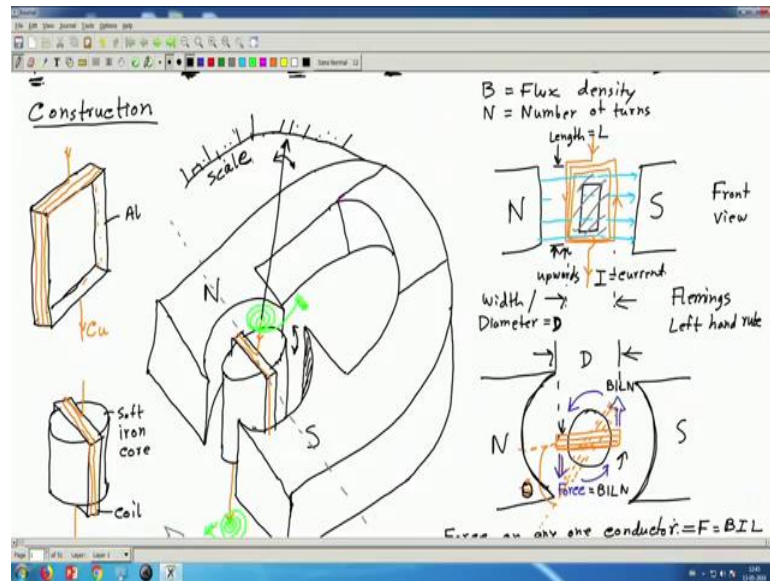 Journal
File Edit View Journal Tools Options Help
Sans Normal 12
Construction
Al
Cu
Soft
iron
core
coil
scale
N
S
B = Flux density
N = Number of turns
Length = L
N
S
Front
view
upwards
I = current
Width /
Diameter = D
Flemings
Left hand rule
D
BILN
N
S
θ
Force = BILN
Force on any one conductor = F = BIL
Page 1 of 51 Layer: Layer 1
12:45